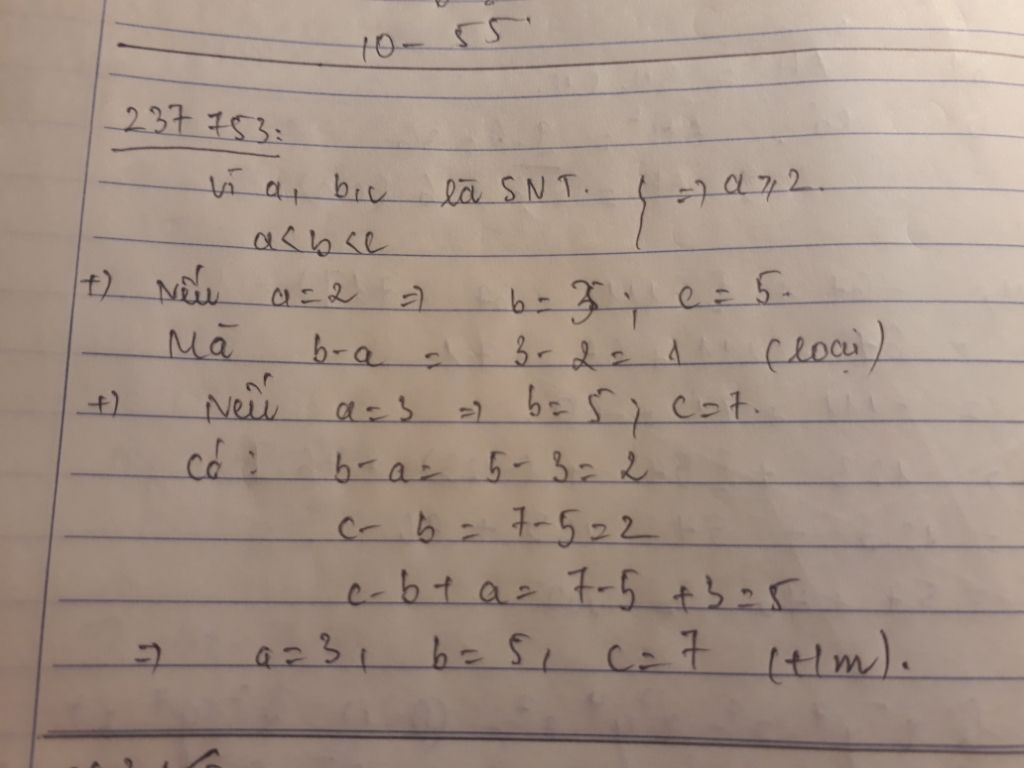 10 - 55
237 753:
Vì a, b, c là SNT. } => a ⩾ 2.
a < b < c
+) Nếu a = 2 => b = 3; c = 5.
Mà b - a = 3 - 2 = 1 (loại)
+) Nếu a = 3 => b = 5; c = 7.
Có: b - a = 5 - 3 = 2
c - b = 7 - 5 = 2
c - b + a = 7 - 5 + 3 = 5
=> a = 3, b = 5, c = 7 (t/m).